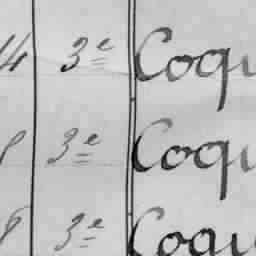 4 3e Coqu
8 3e Coqu
8 3e Coqu